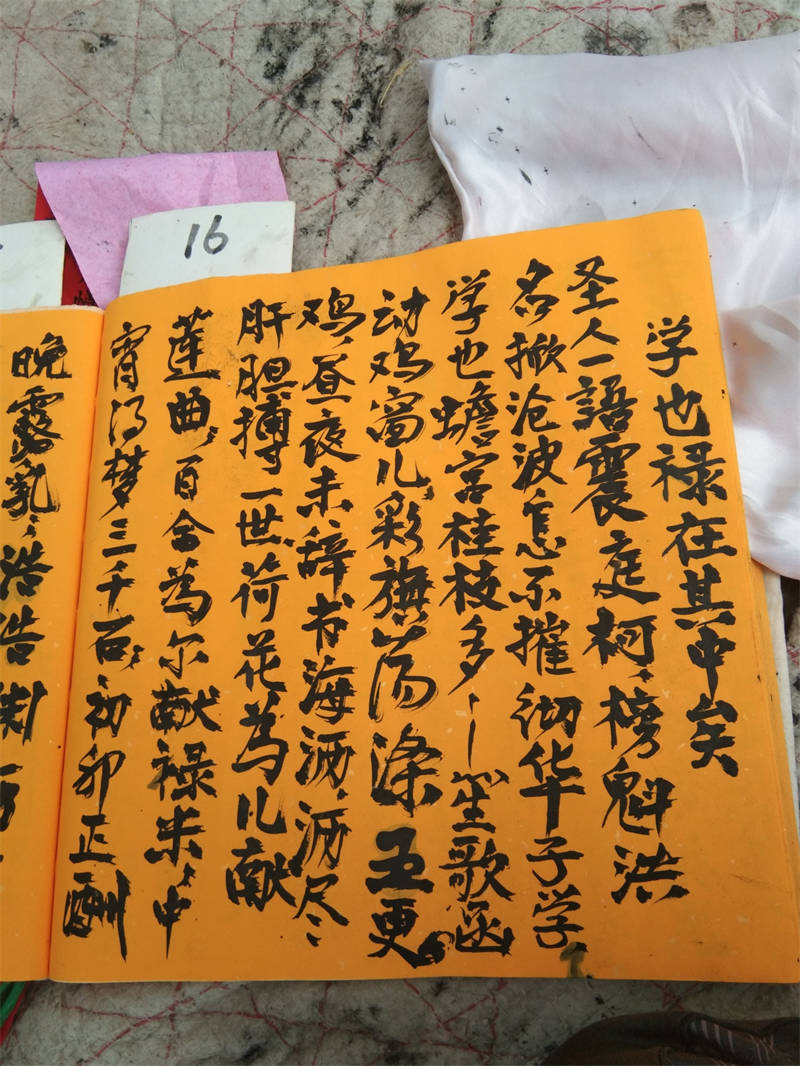 16
学也禄在其中矣
圣人一語震庭柯,榜魁洪
名掀沧波怎不摧彻华子学
学也蟾宫桂枝多~笙歌函
动鸡窗儿彩旗荡涤五更
鸡,昼夜未辞书海洒,洒尽〻
肝胆搏一世荷花为儿献
莲曲,百合为尔献禄米,中
宵得梦三千石,初卯正酬
晚露乳〻浩浩制